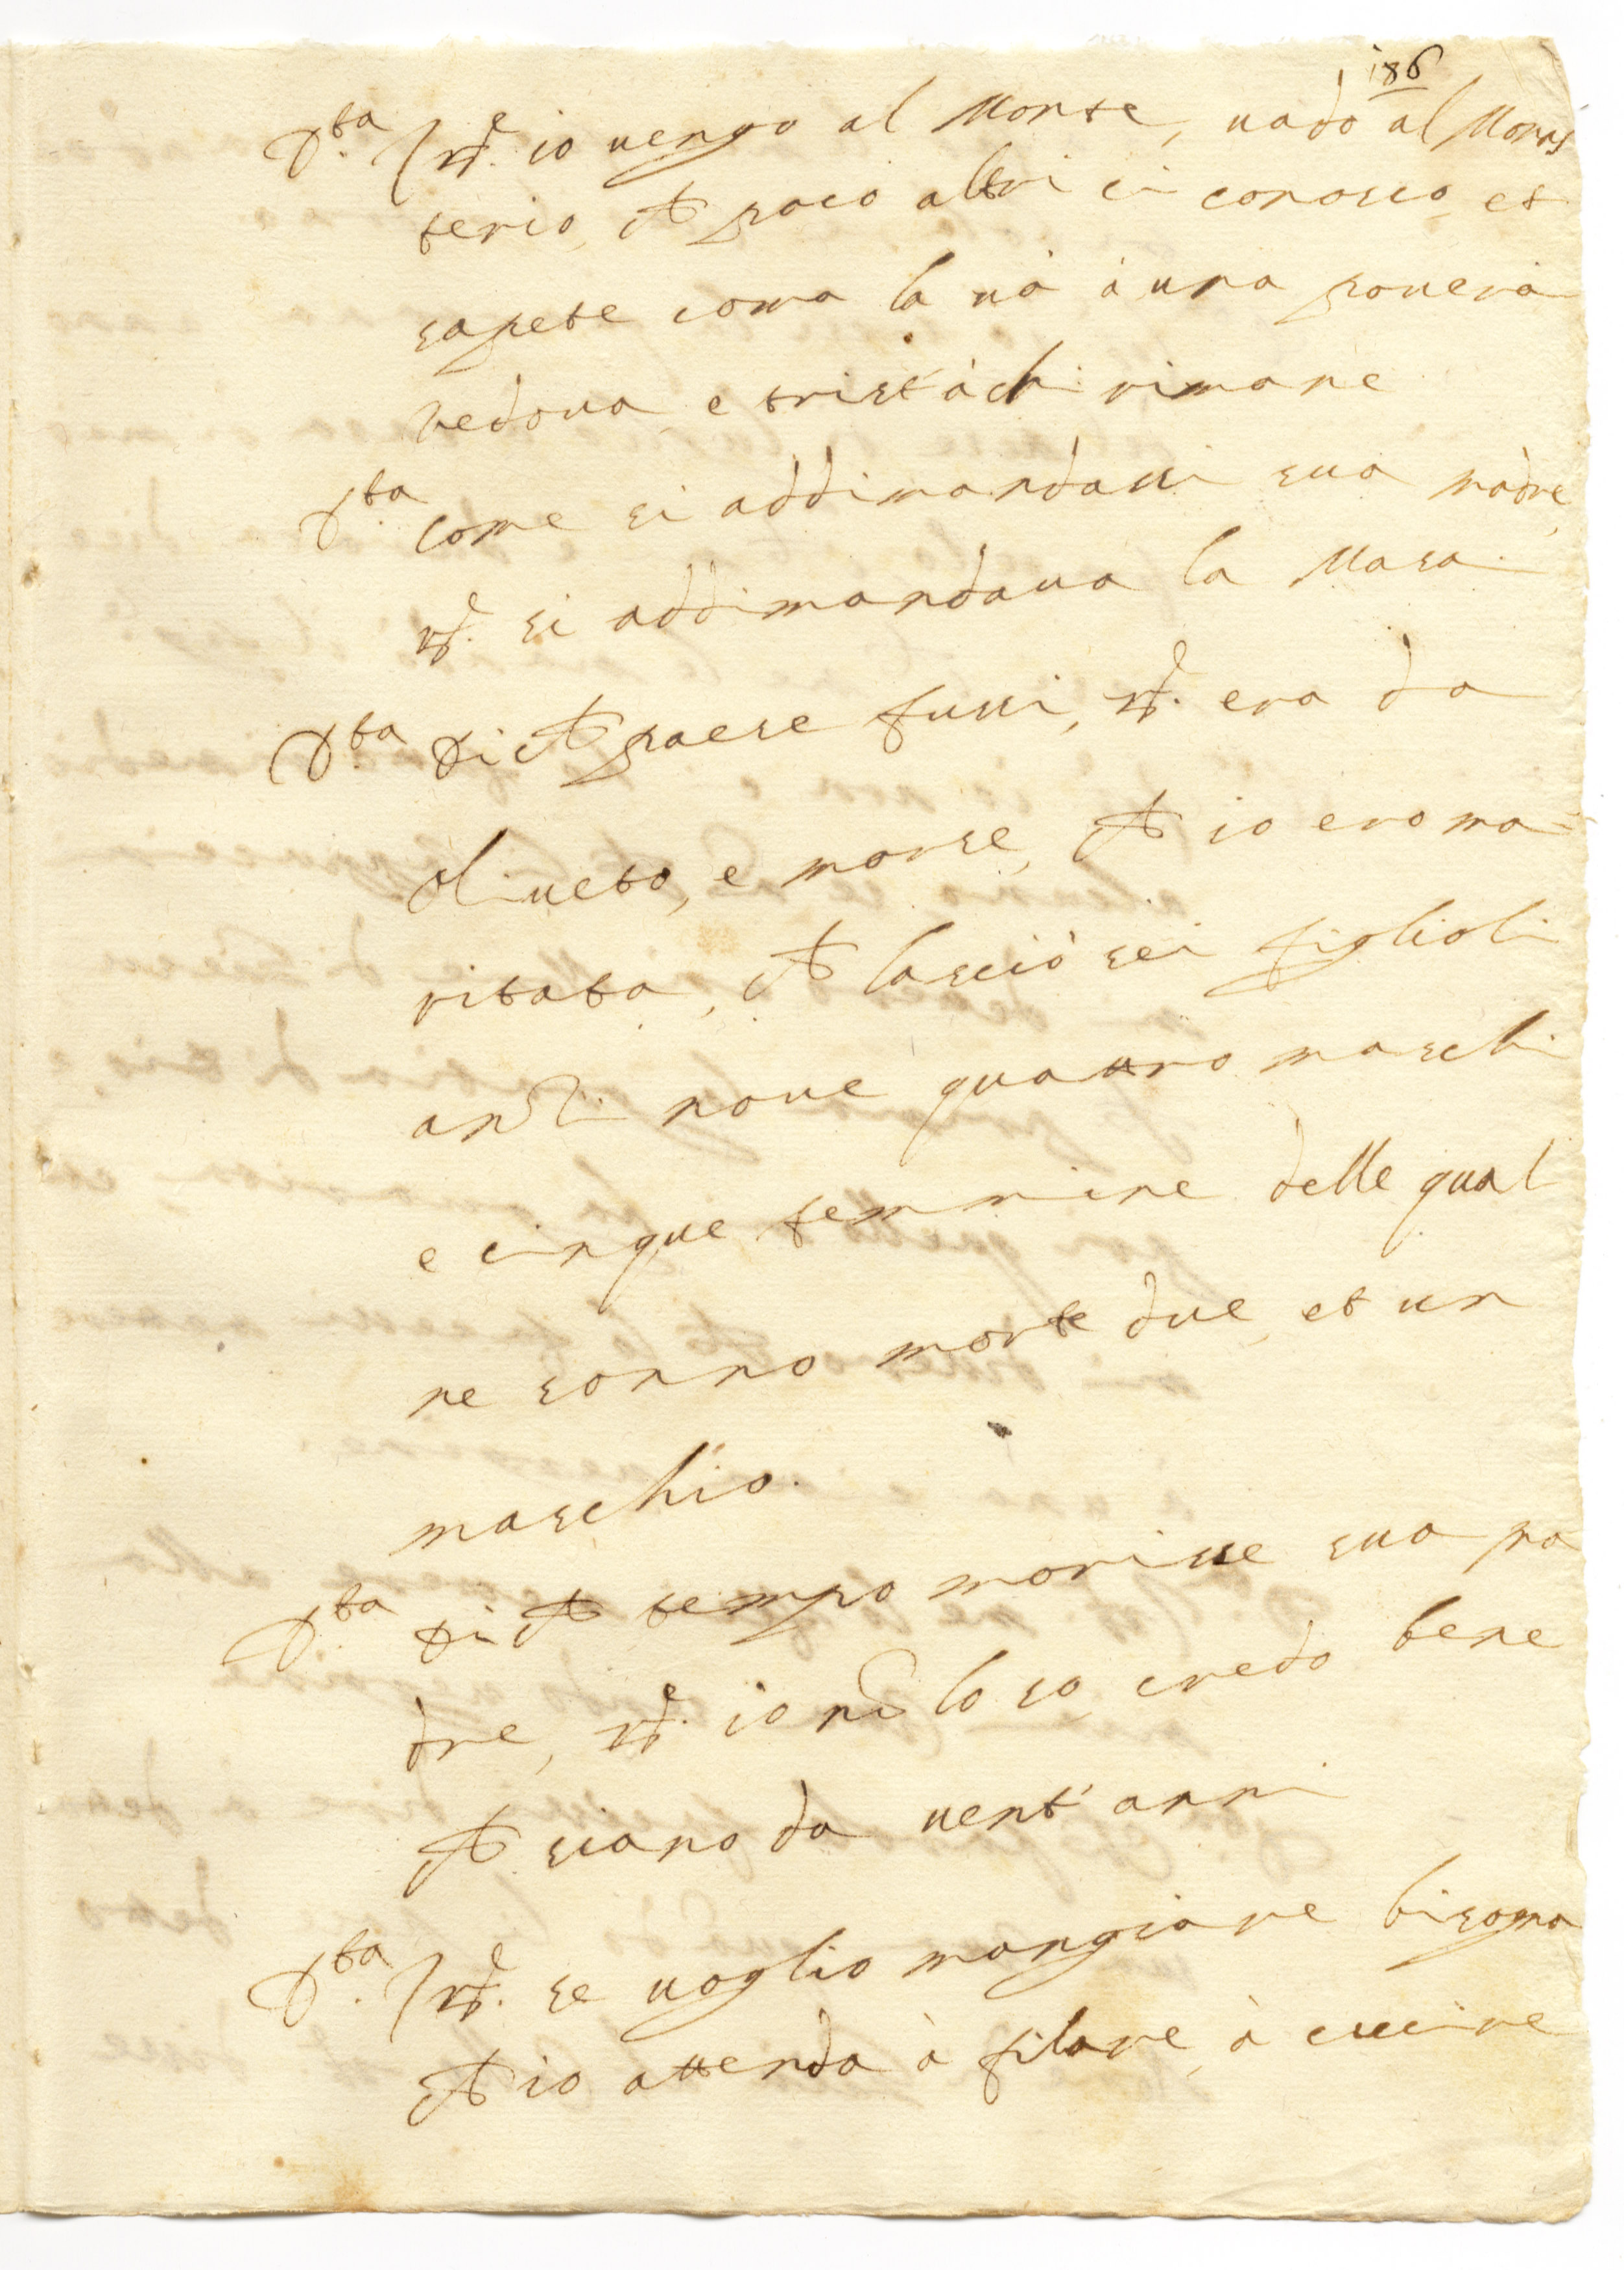 186
D.ta R.e io uengo al Monte, uado al Monas
terio, che poco altri ci conosco, et
sapete coma la uà à una pouera
vedoua, e trist'à chi rimane
D.ta come si addimandassi sua madre,
R.e si addimandaua la Masa.
D.ta Di che paese fussi, R.e era da
Oliueto, e morse, che io ero ma
ritata, che lasciò sei figlioli
anzi noue quattro maschi
e cinque femmine delle quali
ne sonno morte due, et un
maschio.
D.ta Di che tempo morisse sua ma
dre, R.e io nō lo so, credo bene
che siano da uent'anni
D.ta R.e se uoglio mangiare bisogna
che io attenda à filare, à cucire